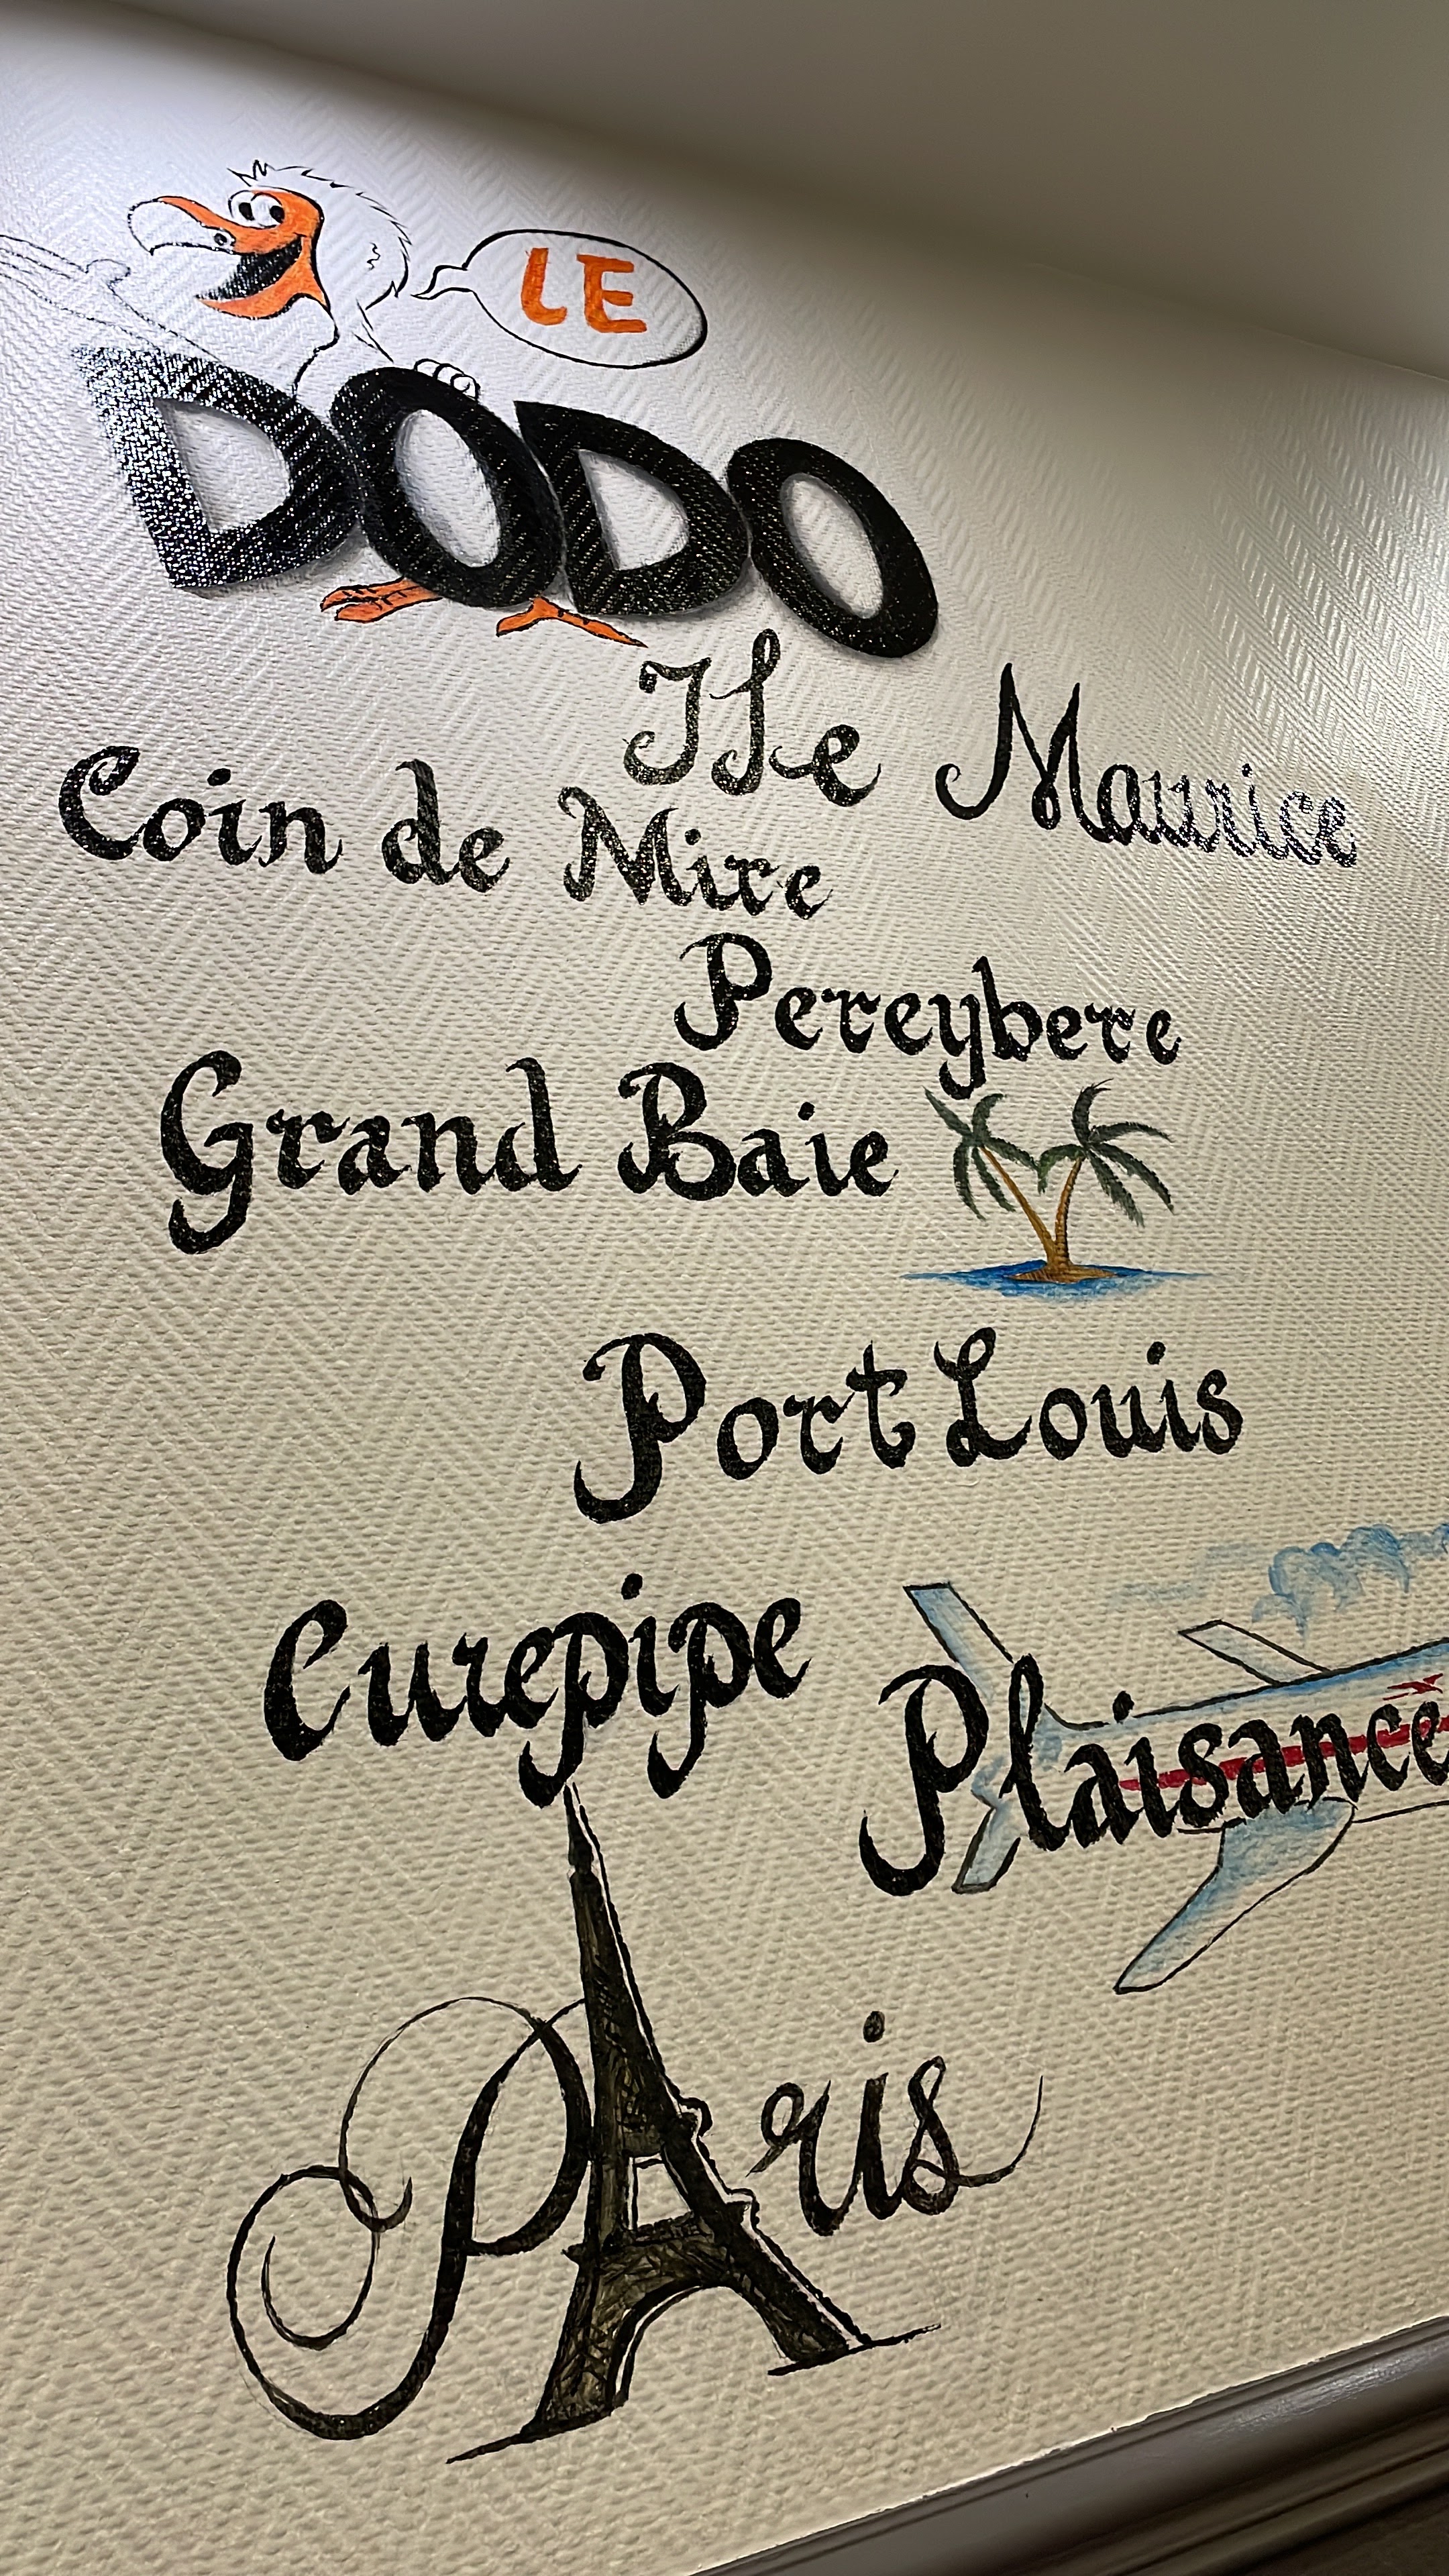 LE
DODO
Ile Maurice
Coin de Mire
Pereybere
Grand Baie
Port Louis
Curepipe
Plaisance
PAris